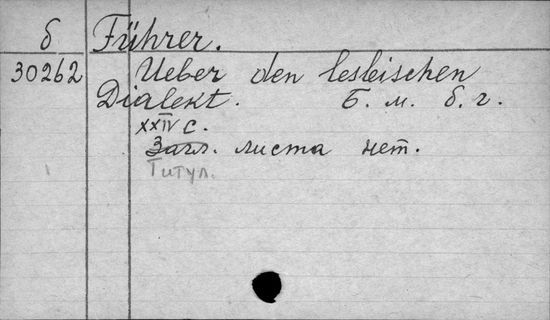 б Führer.
30262 Ueber den lesbischen
Dialekt. Б. м. б. г.
XXIV с.
Загл. листа нет.
Титул.